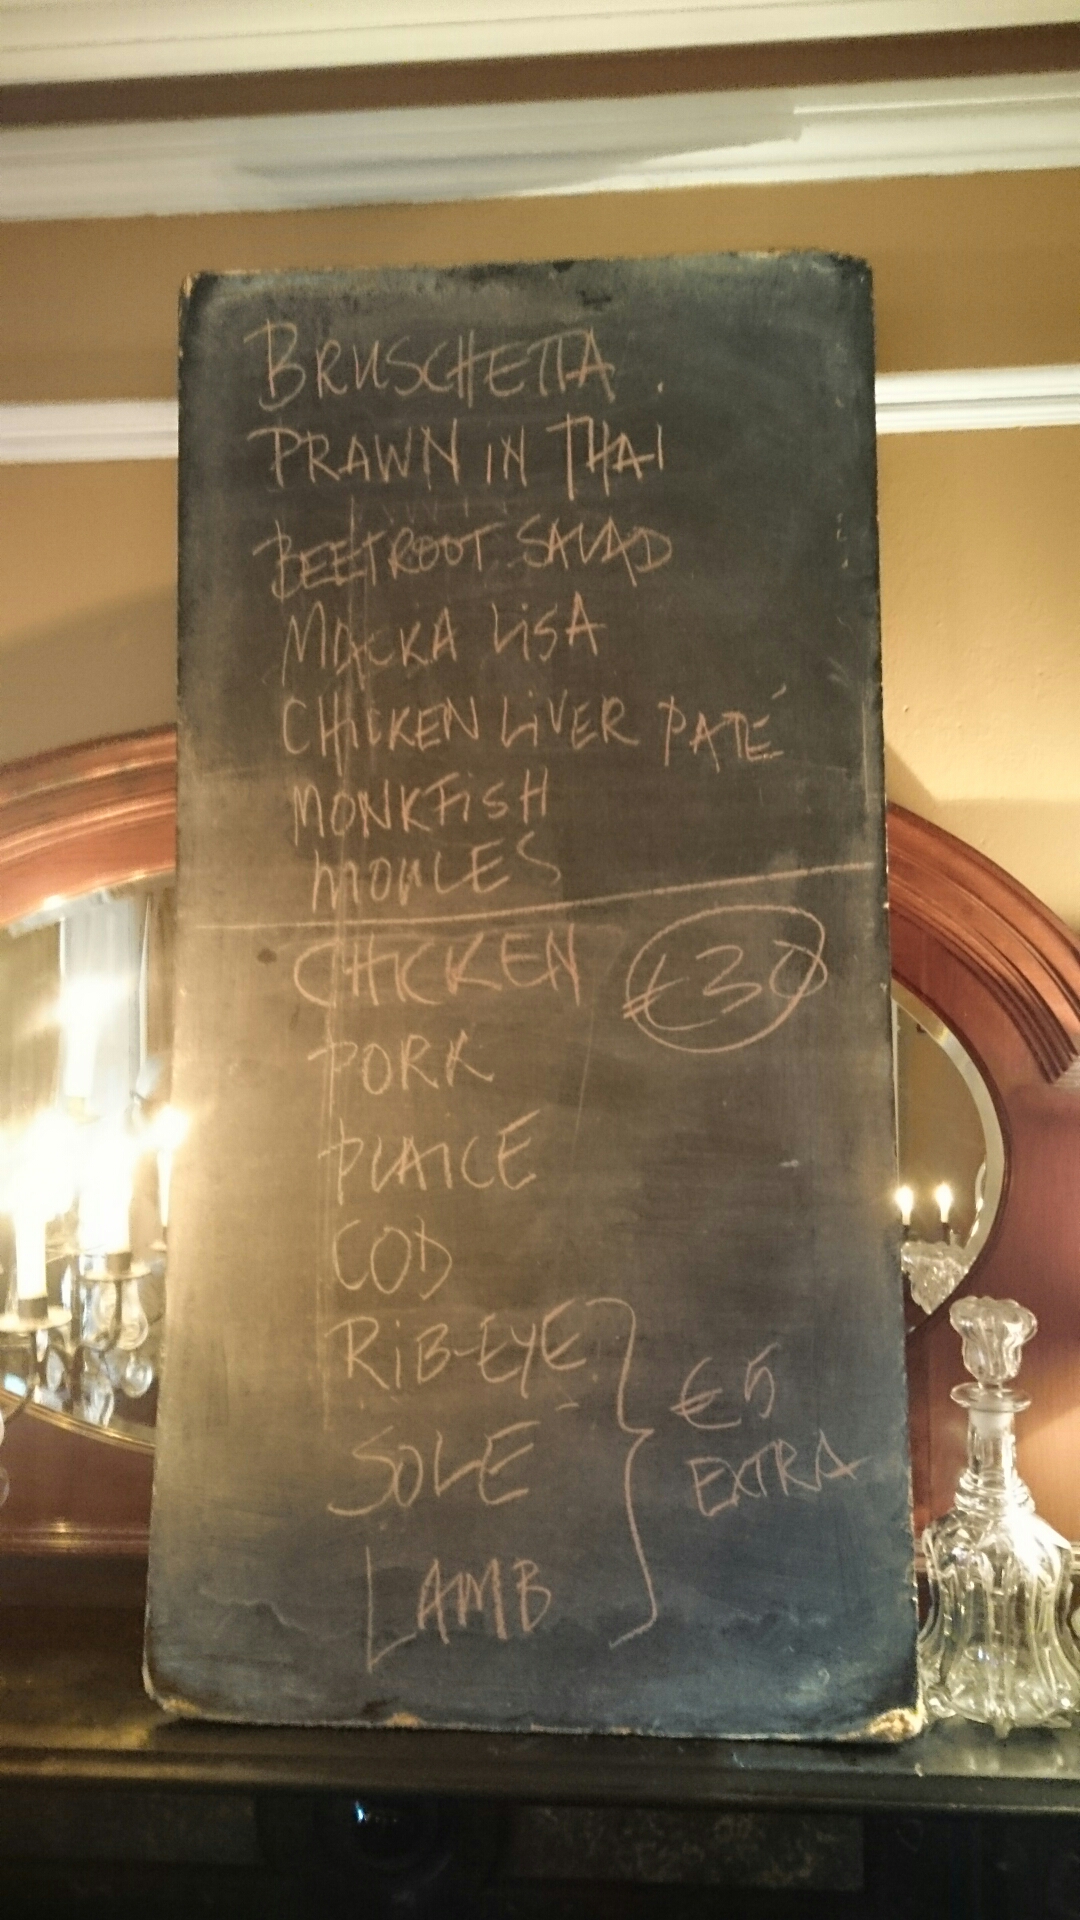 BRUSCHETTA.
PRAWN IN THAI
BEETROOT SALAD
MACKA LISA
CHICKEN LIVER PATÉ
MONKFISH
MOULES
CHICKEN €30
PORK
PLAICE
COD
RIB-EYE
SOLE
LAMB
€5
EXTRA